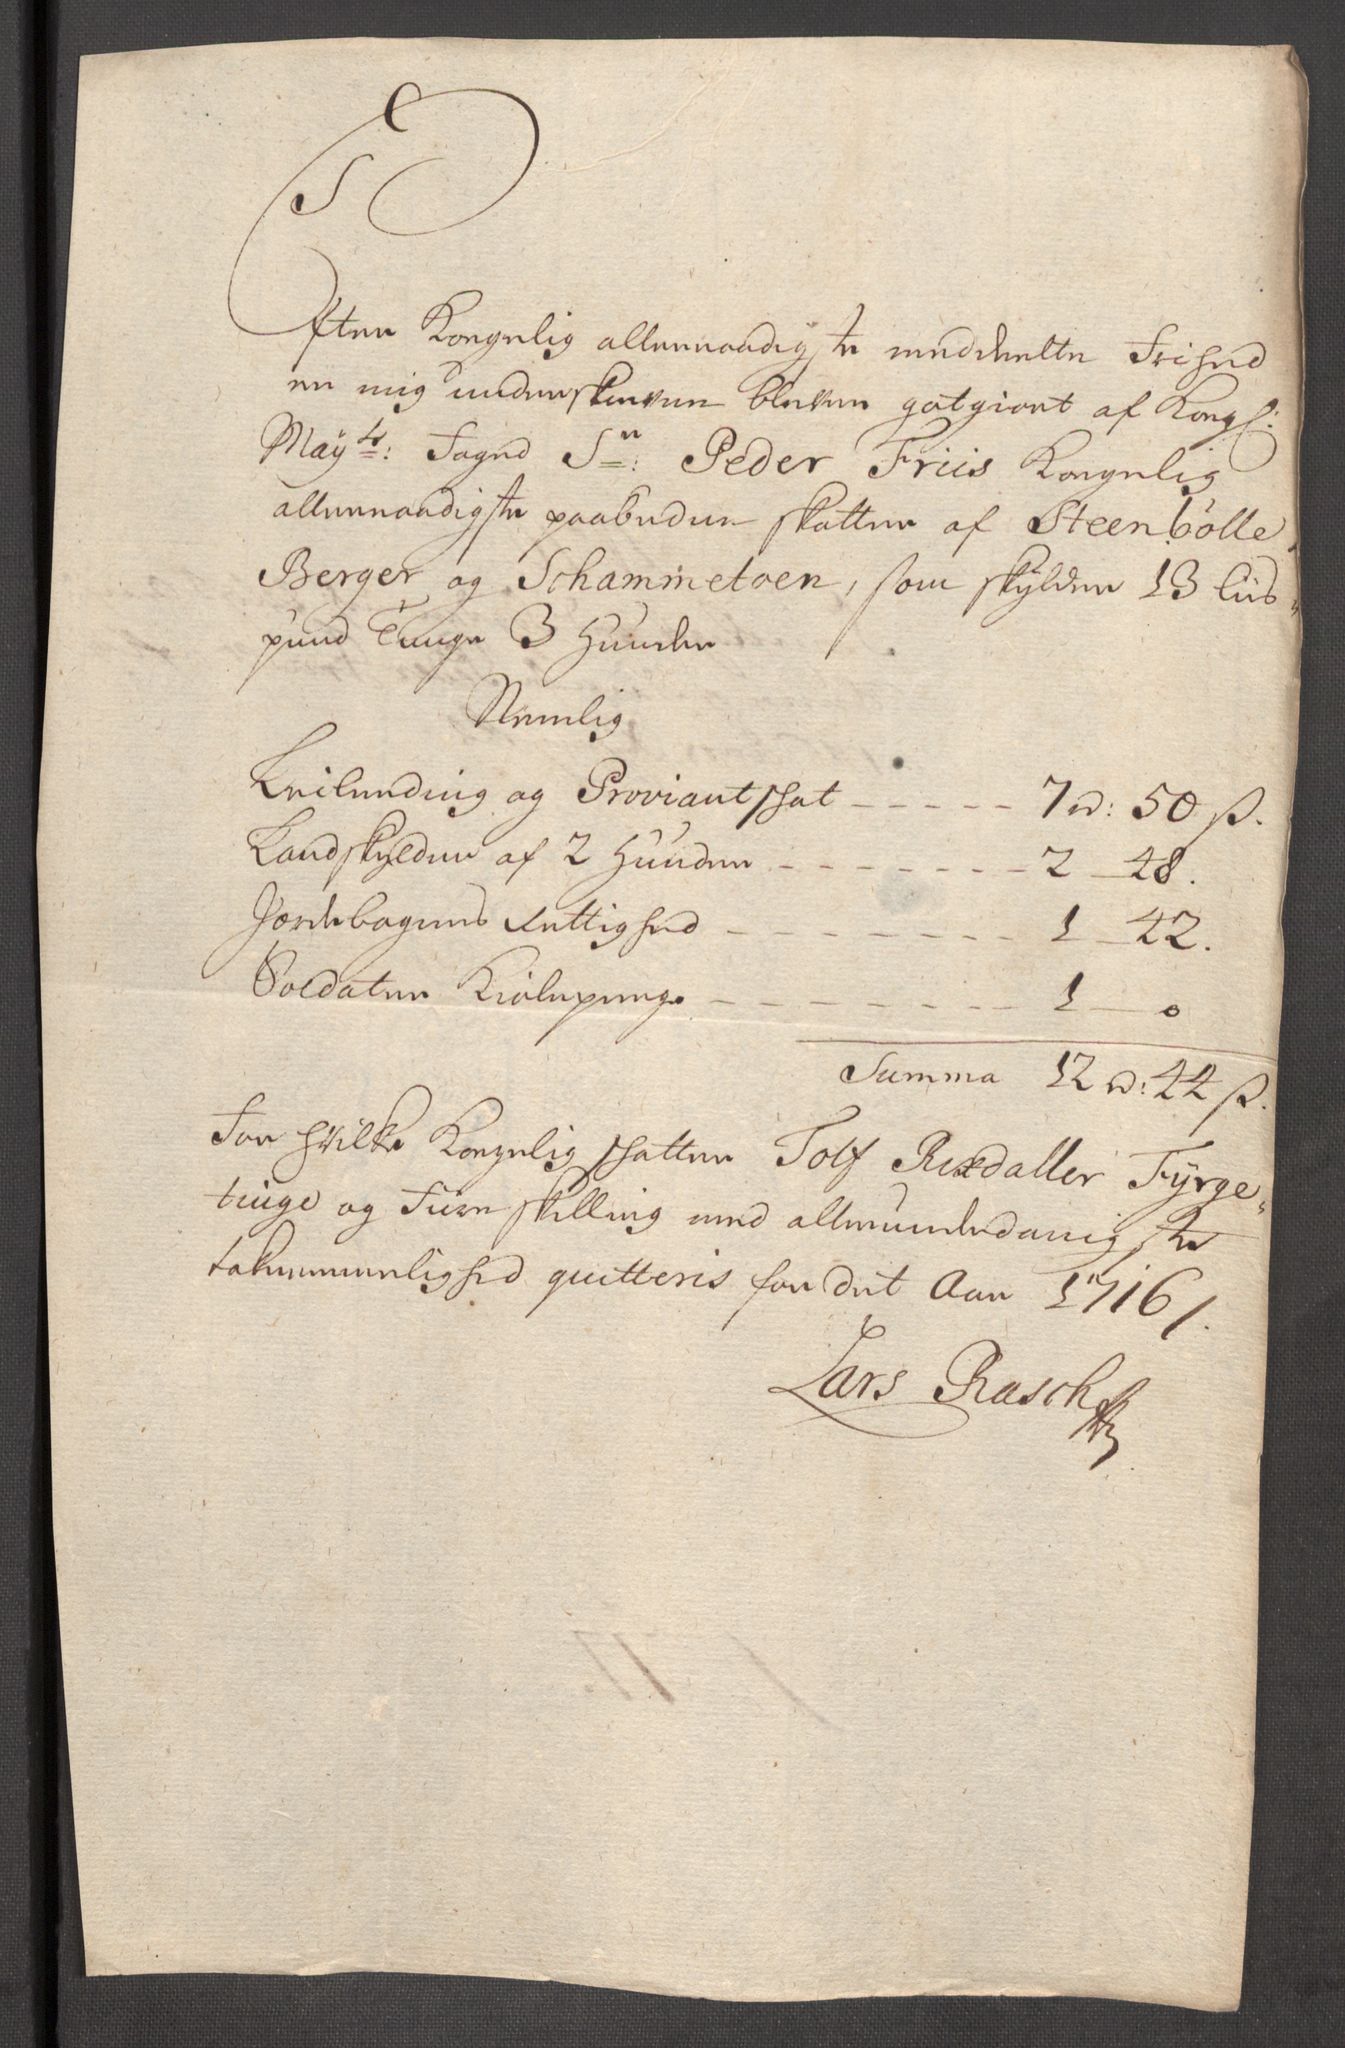 Efter Kongelig allernaadigste meddeelte Frihed
er mig underskreven bleven gotgiort af Kongl:
Maÿts: Foged Sr: Peder Friis Kongelig
allernaadigste paabudne skatter af Steenbölle,
Berger og Schammetven, som skÿlder 13 liis-
pund Tunge 3 Huuder
Nemlig
Leilending og Proviantschat ----- 7 rd: 50 ß.
Landskÿlden af 2 Huuder ------- 2 – 48.
Jordebogens Rettighed -------- 1 – 42.
Soldater Kiolepenge -------- 1 – 0
Summa 12 rd: 44 ß.
For hvilke Kongelig schatter Tolf Rixdaller Fÿrge-
tiuge og Fiire skilling med allerunderdanigste
taknemmelighed qvitteris for det Aar 1716/.
Lars Rasch